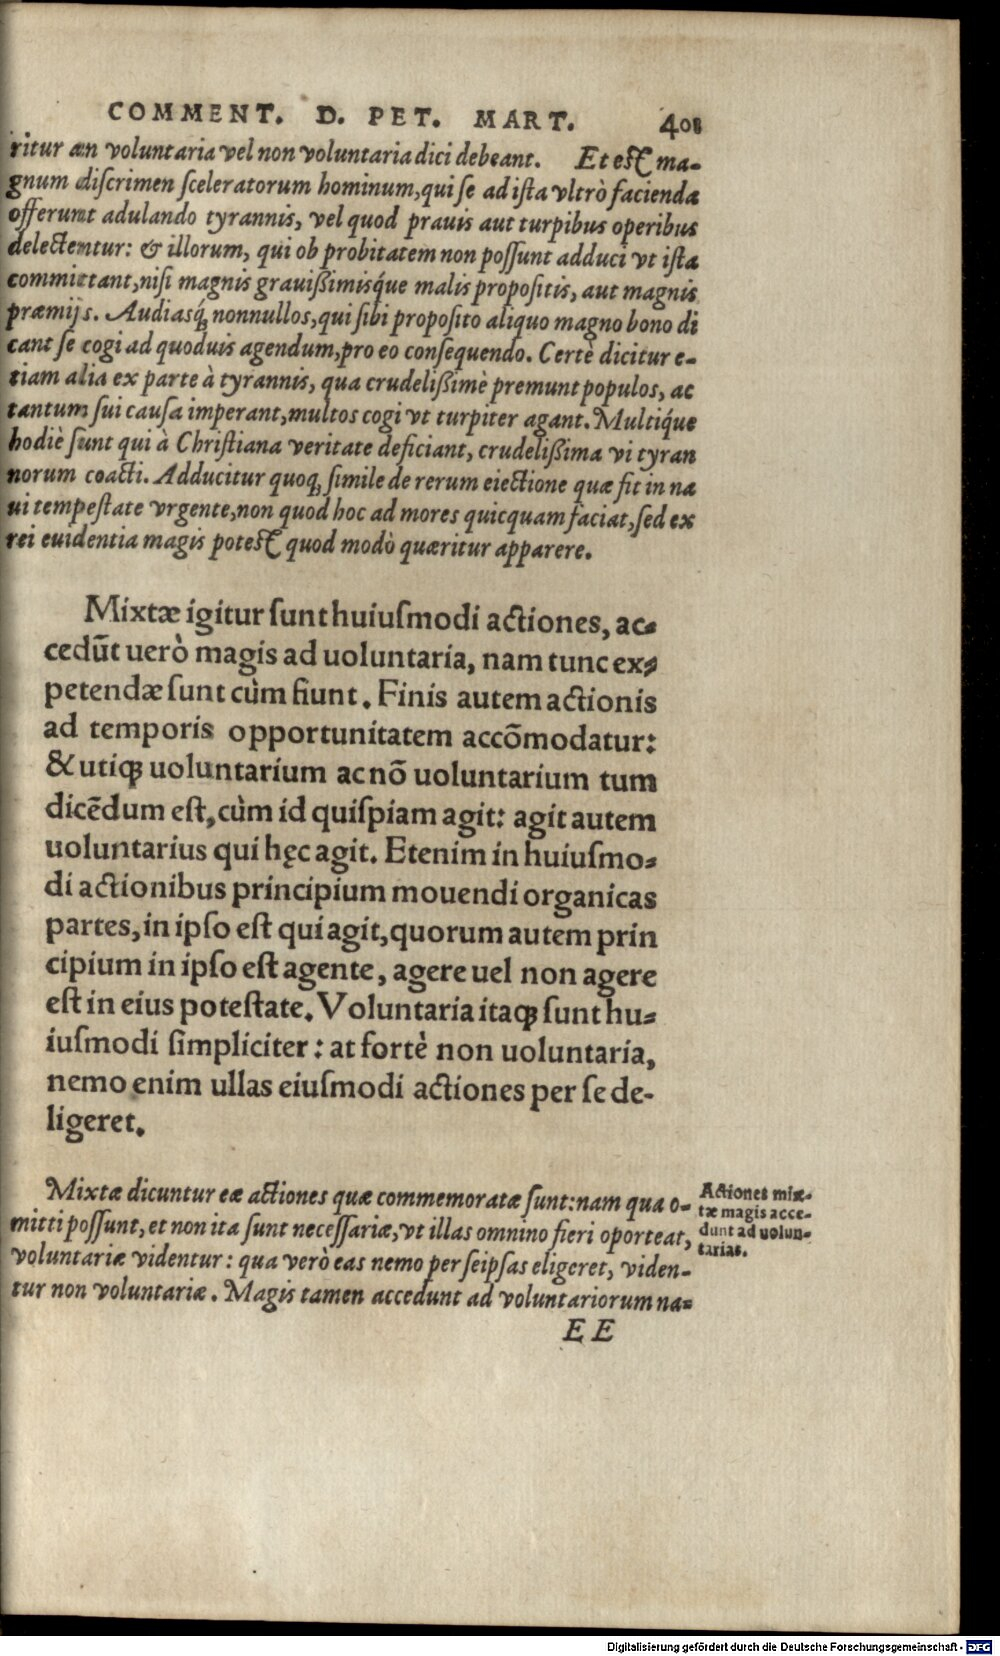 COMMENT. D. PET. MART. 408
ritur an voluntaria vel non voluntaria dici debeant. Et est ma-
gnum discrimen sceleratorum hominum, qui se ad ista vltrò facienda
offerunt adulando tyrannis, vel quod prauis aut turpibus operibus
delectentur: & illorum, qui ob probitatem non possunt adduci vt ista
committant, nisi magnis grauißimisq́ue malis propositis, aut magnis
præmijs. Audiasq́; nonnullos, qui sibi proposito aliquo magno bono di
cant se cogi ad quoduis agendum, pro eo consequendo. Certè dicitur e-
tiam alia ex parte à tyrannis, qua crudelißimè premunt populos, ac
tantum sui causa imperant, multos cogi vt turpiter agant. Multiq́ue
hodiè sunt qui à Christiana veritate deficiant, crudelißima vi tyran
norum coacti. Adducitur quoq; simile de rerum eiectione quæ fit in na
ui tempestate vrgente, non quod hoc ad mores quicquam faciat, sed ex
rei euidentia magis potest quod modò quæritur apparere.
Mixtæ igitur sunt huiusmodi actiones, ac-
cedũt uerò magis ad uoluntaria, nam tunc ex-
petendæ sunt cùm fiunt. Finis autem actionis
ad temporis opportunitatem accõmodatur:
& utiq; uoluntarium ac nõ uoluntarium tum
dicẽdum est, cùm id quispiam agit: agit autem
uoluntarius qui hęc agit. Etenim in huiusmo-
di actionibus principium mouendi organicas
partes, in ipso est qui agit, quorum autem prin
cipium in ipso est agente, agere uel non agere
est in eius potestate. Voluntaria itaq; sunt hu-
iusmodi simpliciter: at fortè non uoluntaria,
nemo enim ullas eiusmodi actiones per se de-
ligeret.
Mixtæ dicuntur eæ actiones quæ commemoratæ sunt: nam qua o-
mitti possunt, et non ita sunt necessariæ, vt illas omnino fieri oporteat,
voluntariæ videntur: qua verò eas nemo per seipsas eligeret, viden-
tur non voluntariæ. Magis tamen accedunt ad voluntariorum na-
Actiones mix-
tæ magis acce-
dunt ad uolun-
tarias.
EE
Digitalisierung gefördert durch die Deutsche Forschungsgemeinschaft - DFG